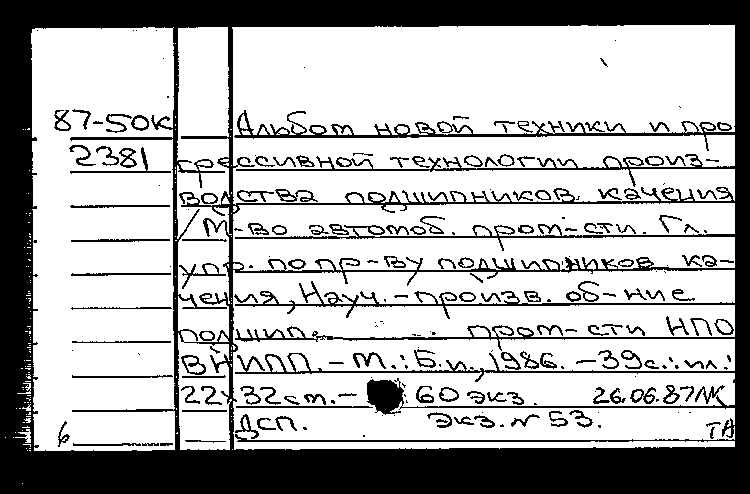 87-50К Альбом новой техники и про
2381 грессивной технологии произ-
водства подшипников качения
/ М-во автомоб. пром-сти. Гл.
упр. по пр-ву подшипников ка-
чения, Науч.-произв. об-ние
подшип. пром-сти НПО
ВНИПП. - М.: Б.и., 1986. - 39с.: ил.;
22х32см. - 60 экз. 26.06.87ЛК
ДСП. Экз. N 53.
6 ТА